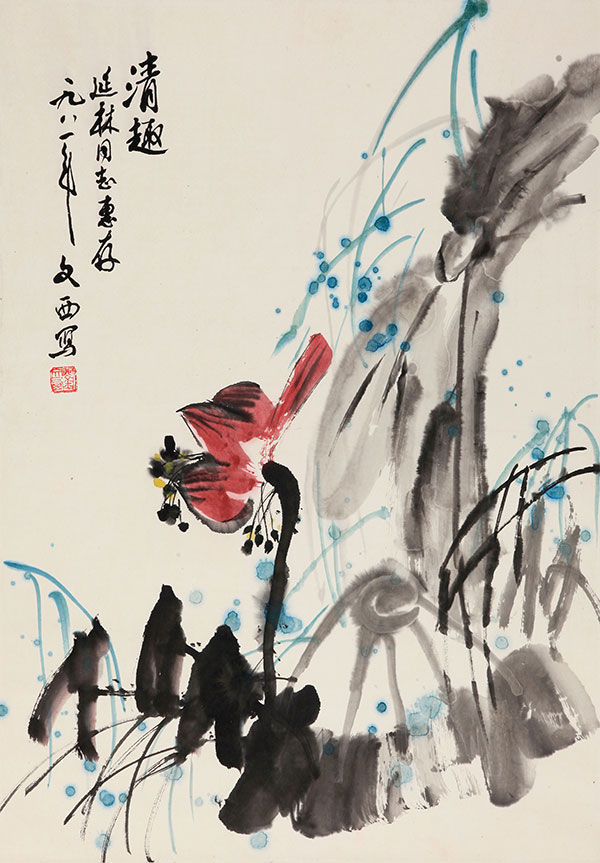 清趣
延林同志惠存
一九八一年 文西写